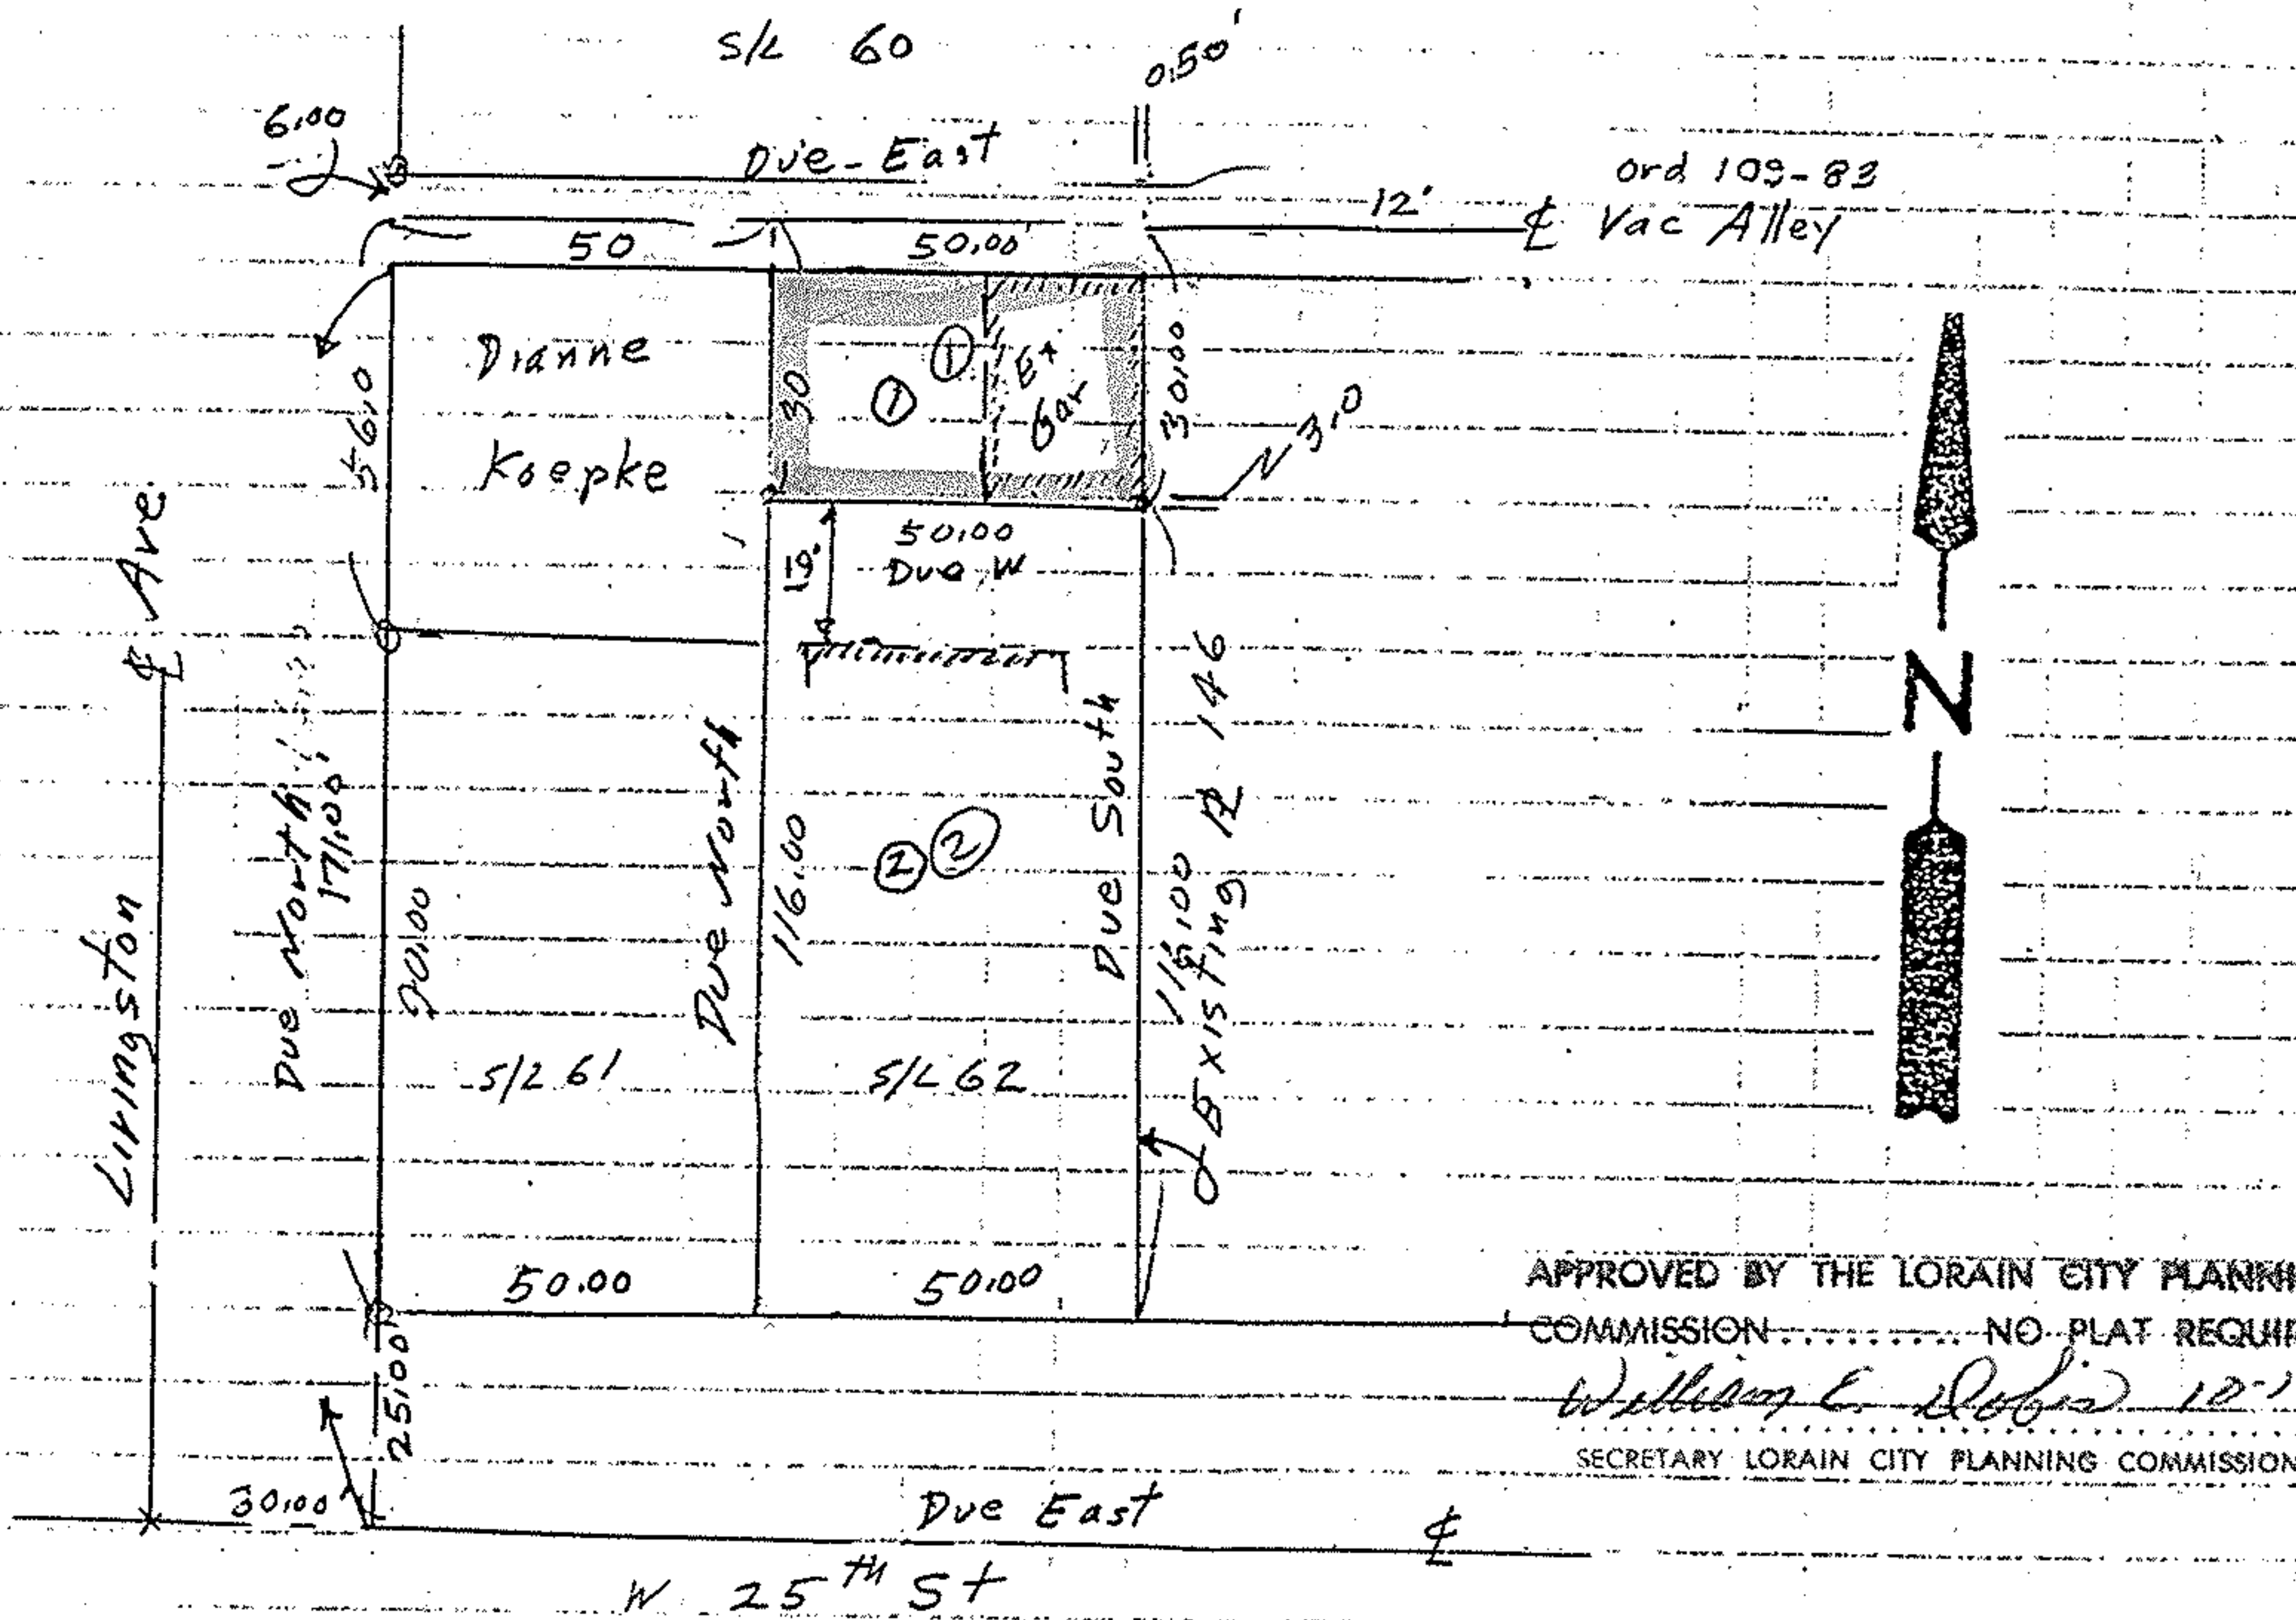 S/L 60
0.50'
6.00
Due-East
Ord 109-83
12' ℄ Vac Alley
50
50.00
Dianne
Koepke
56.0
30
1
1
Ex
Gar
30.00
N 3.0
50.00
Due W
19'
℄ Ave
Livingston
Due North
171.00'
90.00
Due North
116.00
2
2
Due South
116.00
Existing ⅊ 146
N
S/L 61
S/L 62
50.00
50.00
APPROVED BY THE LORAIN CITY PLANNI
COMMISSION......... NO PLAT REQUIR
William E.
SECRETARY LORAIN CITY PLANNING COMMISSION
25.00
30.00
Due East
℄
W 25th St